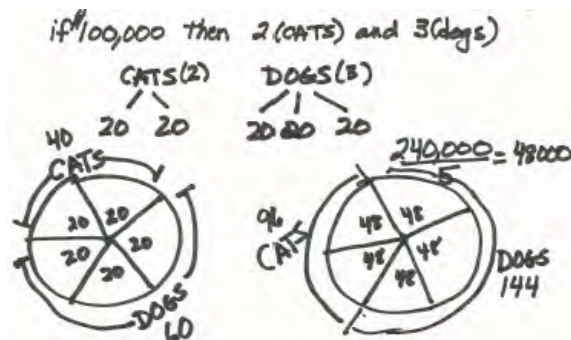 if 100,000 then 2 (CATS) and 3 (dogs)
CATS (2) DOGS (3)
20 20 20 20 20
40
CATS
20 20
20 20
20
DOGS
60
240,000 = 48000
5
96
CATS
48 48
48 48
48
DOGS
144